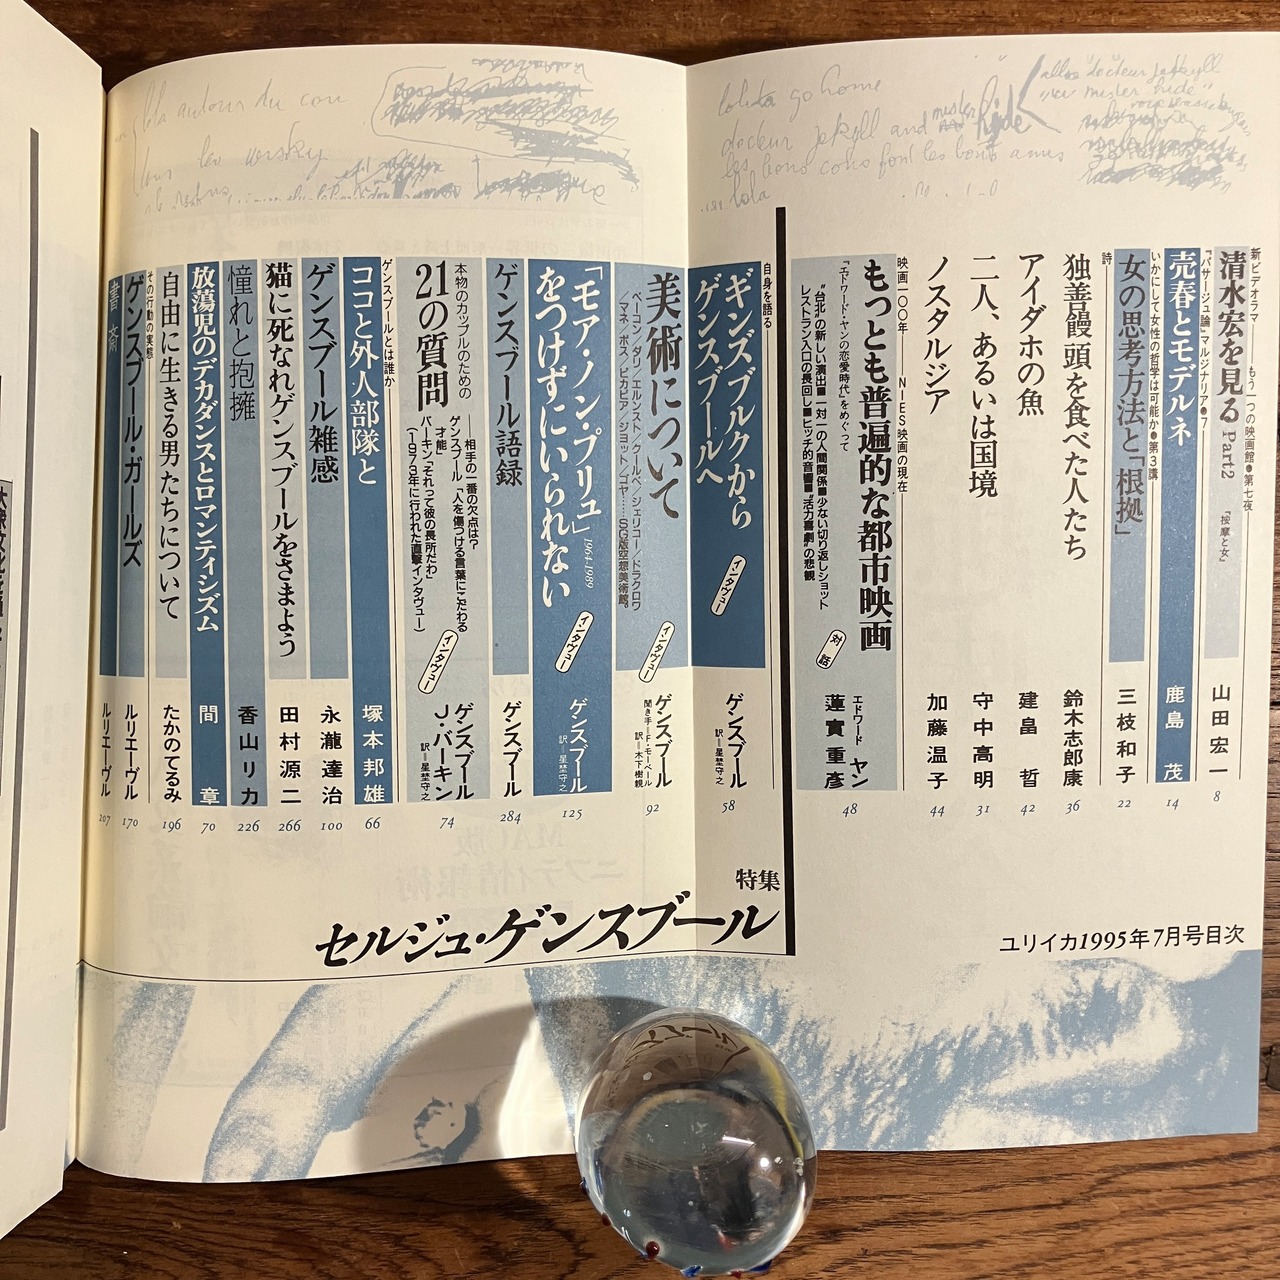 lolita go home
docteur jekyll and mister hide
les bons cons font les bons amis
lola
allo docteur jekyll
新ビデオラマ――もう一つの映画館●第七夜
清水宏を見る Part2 『按摩と女』
山田宏一
8
『パサージュ論』マルジナリア●7
売春とモデルネ
鹿島 茂
14
いかにして女性の哲学は可能か●第3講
女の思考方法と「根拠」
三枝和子
22
詩
独善饅頭を食べた人たち
鈴木志郎康
36
アイダホの魚
建畠 晢
42
二人、あるいは国境
守中高明
31
ノスタルジア
加藤温子
44
映画一〇〇年――NIES映画の現在
もっとも普遍的な都市映画
『エドワード・ヤンの恋愛時代』をめぐって
"台北"の新しい演出■一対一の人間関係■少ない切り返しショット
レストラン入口の長回し■ヒッチ的音響■"活力喜劇"の悲観
対話
エドワード ヤン
蓮實重彦
48
特集
セルジュ・ゲンスブール
自身を語る
ギンズブルクから
ゲンスブールへ
インタヴュー
ゲンスブール
訳=星埜守之
58
美術について
ベーコン/ダリ/エルンスト/クールベ/ジェリコー/ドラクロワ
マネ/ボス/ピカビア/ジョット/ゴヤ……SG版空想美術館。
インタヴュー
ゲンスブール
聞き手=F・モーベール
訳=木下樹親
92
「モア・ノン・プリュ」
をつけずにいられない 1964-1989
インタヴュー
ゲンスブール
訳=星埜守之
125
ゲンスブール語録
ゲンスブール
284
本物のカップルのための
21の質問
――相手の一番の欠点は?
ゲンスブール「人を傷つける言葉にこだわる
才能」
バーキン「それって彼の長所だわ」
(1973年に行われた直撃インタヴュー)
インタヴュー
ゲンスブール
J・バーキン
訳=星埜守之
74
ゲンスブールとは誰か
ココと外人部隊と
塚本邦雄
66
ゲンスブール雑感
永瀧達治
100
猫に死なれゲンスブールをさまよう
田村源二
266
憧れと抱擁
香山リカ
226
放蕩児のデカダンスとロマンティシズム
間 章
70
自由に生きる男たちについて
たかのてるみ
196
その行動の実態
ゲンスブール・ガールズ
ルリエーヴル
170
書斎
ルリエーヴル
207
ユリイカ1995年7月号目次